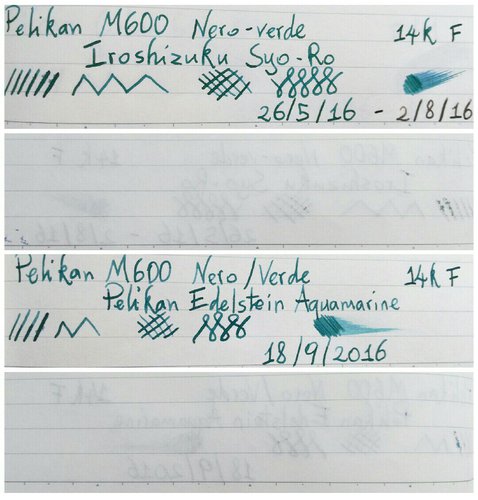 Pelikan M600 Nero-verde 14k F
Iroshizuku Syo-Ro
26/5/16 - 2/8/16
Pelikan M600 Nero/Verde 14k F
Pelikan Edelstein Aquamarine
18/9/2016